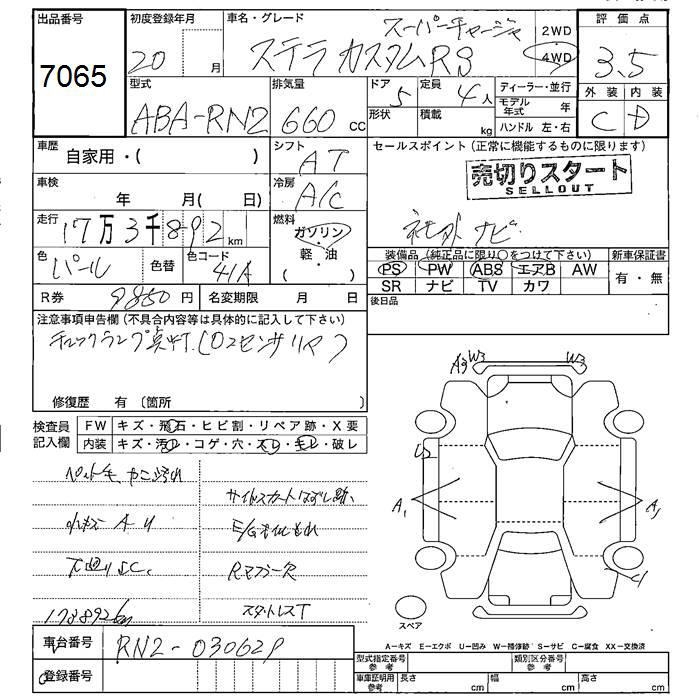 出品番号
7065
初度登録年月
20 月
車名・グレード
スーパーチャージャ
ステラ カスタムRS
2WD
4WD
評価点
3.5
外装 内装
C D
型式
ABA-RN2
排気量
660 cc
ドア
5
形状
定員
4人
積載
kg
ディーラー・並行
モデル年式 年
ハンドル 左・右
車歴
自家用・( )
シフト
AT
車検
年 月( 日)
冷房
A/C
走行
17万3千892km
燃料
ガソリン
軽・油
( )
色
パール
色替
色コード
41A
R券 9850円
名変期限 月 日
セールスポイント(正常に機能するものに限ります)
売切りスタート
SELLOUT
社外ナビ
装備品(純正品に限り○をつけて下さい)
新車保証書
PS PW ABS エアB AW
SR ナビ TV カワ
有・無
後日品
注意事項申告欄(不具合内容等は具体的に記入して下さい)
チェックランプ点灯(O2センサリヤ)
修復歴 有(箇所 )
検査員記入欄
FW キズ・飛石・ヒビ割・リペア跡・X要
内装 キズ・汚れ・コゲ・穴・スレ・モレ・破レ
ペット毛
小キズ AU
下廻りSC
173892km
サイドスカートはずし跡
E/Gオイルもれ
Rマフラー欠
スタットレスT
A3 W3
W3
U2
A1
A1
C1
スペア
A-キズ E-エクボ U-凹み W-補修跡 S-サビ C-腐食 XX-交換済
車台番号
RN2-030629
登録番号
型式指定番号
参考
類別区分番号
参考
車庫証明用
参考
長さ cm
幅 cm
高さ cm